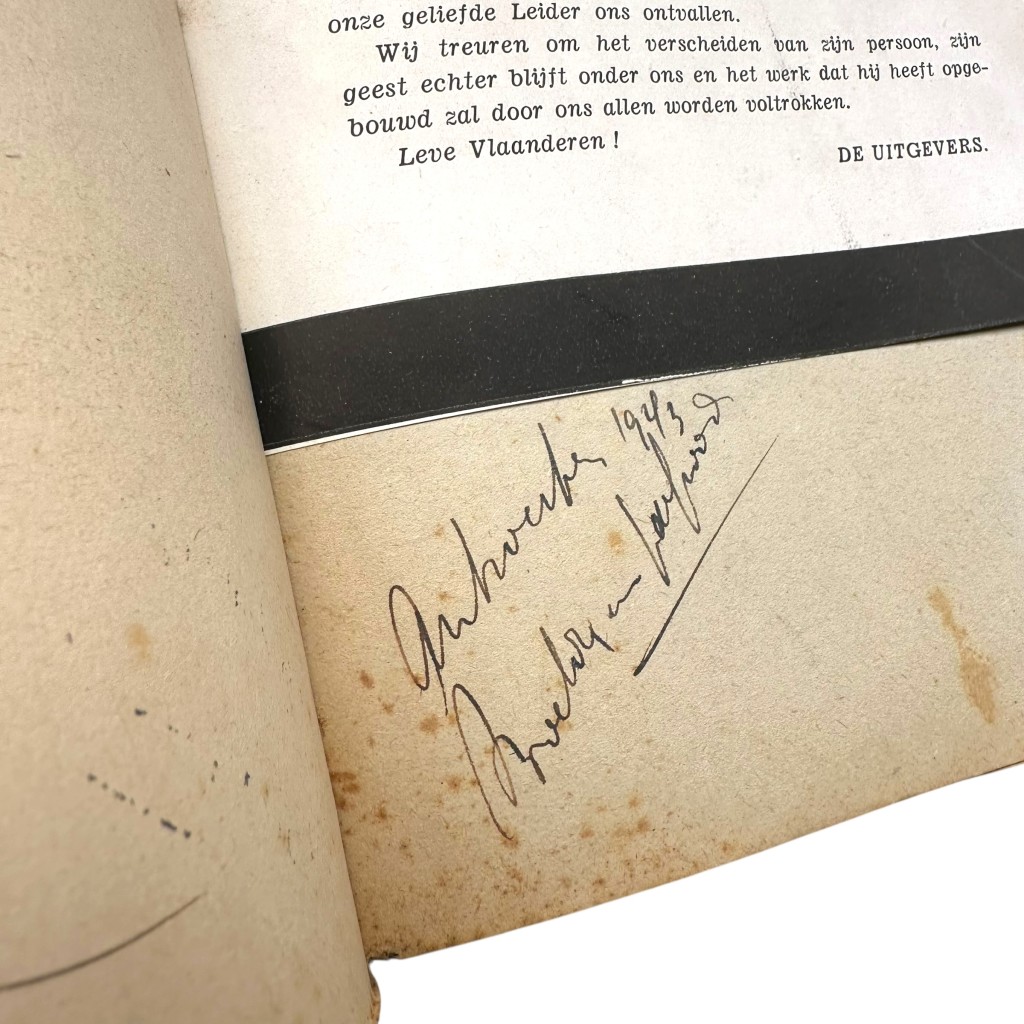 onze geliefde Leider ons ontvallen.
Wij treuren om het verscheiden van zijn persoon, zijn
geest echter blijft onder ons en het werk dat hij heeft opge-
bouwd zal door ons allen worden voltrokken.
Leve Vlaanderen !
DE UITGEVERS.
Antwerpen 1943